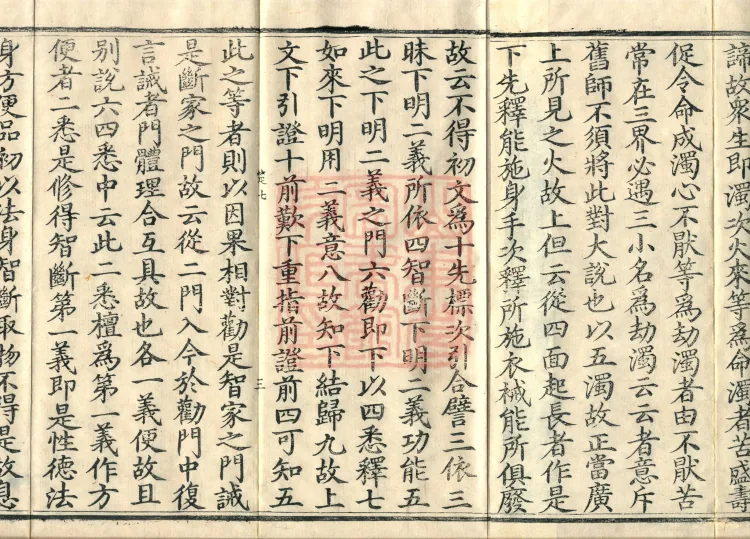 諦故衆生即濁次火來等爲命濁者苦盛壽
促令命成濁心不厭等爲劫濁者由不厭苦
常在三界必遇三小名爲劫濁云云者意斥
舊師不須將此對大說也以五濁故正當廣
上所見之火故上但云從四面起長者作是
下先釋能施身手次釋所施衣裓能所俱廢
故云不得初文爲十先標次引合譬三依三
昧下明二義所依四智斷下明二義功能五
此之下明二義之門六勸即下以四悉釋七
如來下明用二義意八故知下結歸九故上
文下引證十前歎下重指前證前四可知五
七
三
此之等者則以因果相對勸是智家之門誡
是斷家之門故云從二門入今於勸門中復
言誡者門雖體理合互具故也各一義便故且
别說六四悉中云此二悉檀爲第一義作方
便者二悉是修得智斷第一義即是性德法
身方便品初以法身智斷取物不得是故息